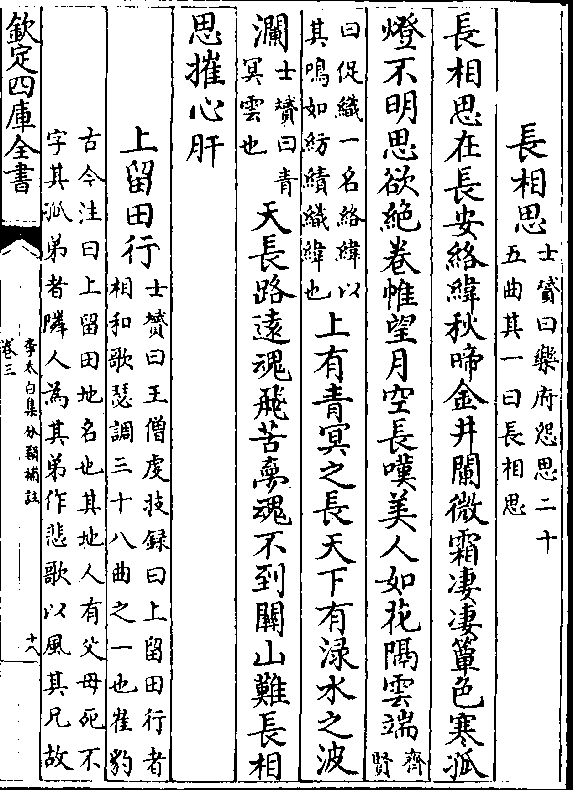 長相思士贇曰樂府怨思二十
五曲其一曰長相思
長相思在長安絡緯秋啼金井闌微霜凄凄簟色寒孤
燈不明思欲絶卷帷望月空長嘆美人如花隔雲端齊
賢
曰促織一名絡緯以
其鳴如紡績織緯也上有青冥之長天下有渌水之波
瀾士贇曰青
冥雲也天長路遠魂飛苦夢魂不到關山難長相
思摧心肝
上留田行士贇曰王僧虔技録曰上留田行者
相和歌瑟調三十八曲之一也崔豹
古今注曰上留田地名也其地人有父母死不
字其孤弟者隣人為其弟作悲歌以風其兄故
欽定四庫全書
李太白集分類補註
卷三
十八